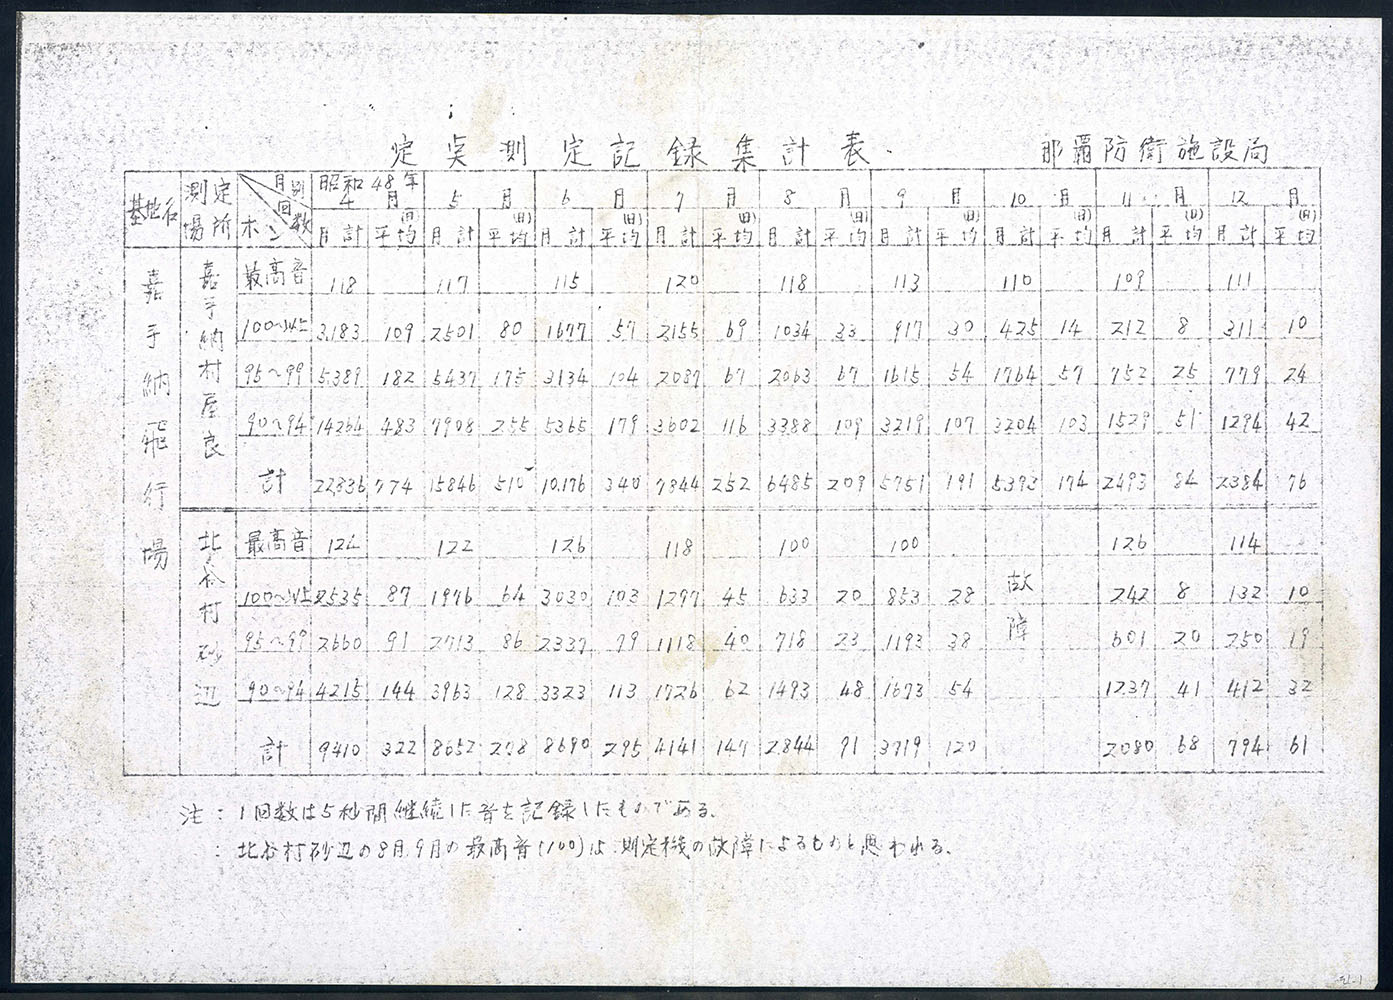 定点測定記録集計表 那覇防衛施設局
基地名 測定場所 月別 回数 ホン 昭和48年4月 5月 6月 7月 8月 9月 10月 11月 12月
月計 (日)平均 月計 (日)平均 月計 (日)平均 月計 (日)平均 月計 (日)平均 月計 (日)平均 月計 (日)平均 月計 (日)平均 月計 (日)平均
嘉手納飛行場
嘉手納村屋良
最高音 118 117 115 120 118 113 110 109 111
100~以上 3,183 109 2501 80 1677 57 2155 69 1034 33 917 30 425 14 212 8 311 10
95~99 5,389 182 5437 175 3134 104 2087 67 2063 67 1615 54 1764 57 752 25 779 24
90~94 14264 483 7908 255 5365 179 3602 116 3388 109 3219 107 3204 103 1529 51 1294 42
計 22,836 774 15846 510 10,176 340 7844 252 6485 209 5751 191 5393 174 2493 84 2384 76
北谷村砂辺
最高音 124 122 126 118 100 100 126 114
100~以上 2535 87 1976 64 3030 103 1297 45 633 20 853 28 故障 242 8 132 10
95~99 2660 91 2713 86 2337 79 1118 40 718 23 1193 38 601 20 250 19
90~94 4215 144 3963 128 3323 113 1726 62 1493 48 1673 54 1237 41 412 32
計 9410 322 8652 278 8690 295 4141 147 2844 91 3719 120 2080 68 794 61
注:1回数は5秒間継続した音を記録したものである。
:北谷村砂辺の8月,9月の最高音(100)は、測定機の故障によるものと思われる。